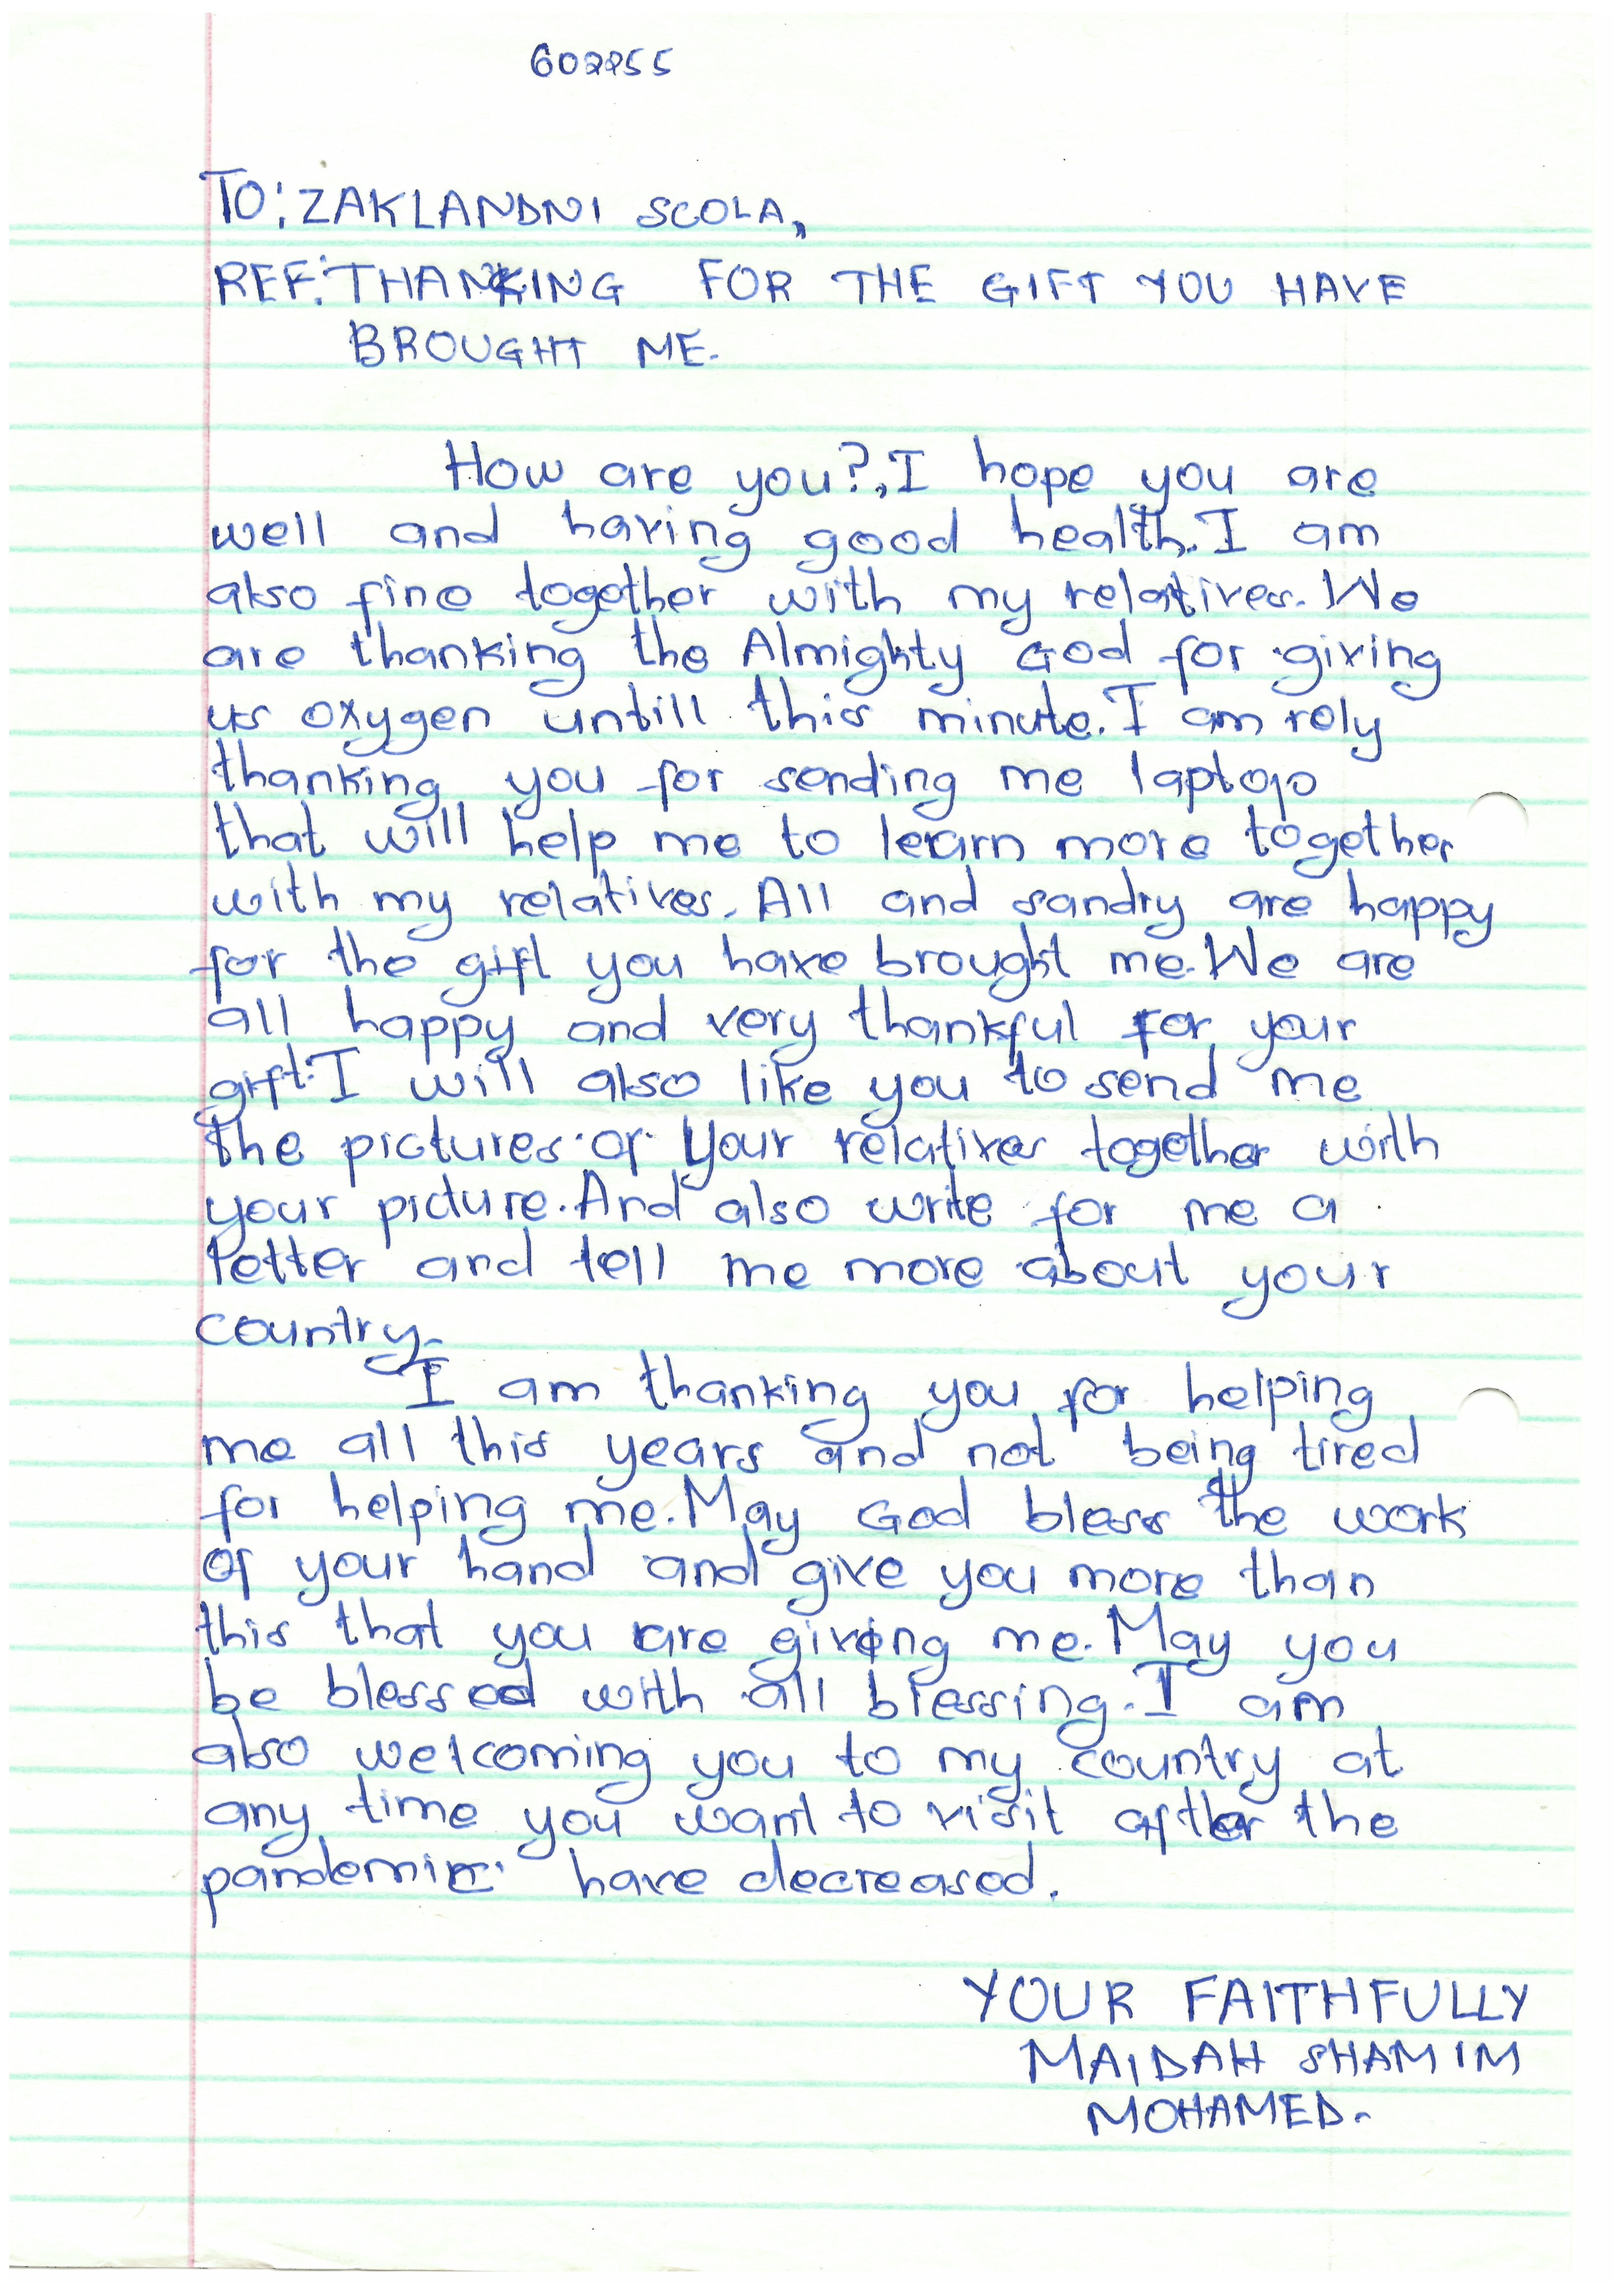 602255
TO: ZAKLANDNI SCOLA,
REF: THANKING FOR THE GIFT YOU HAVE
BROUGHT ME.
How are you?, I hope you are
well and having good health. I am
also fine together with my relatives. We
are thanking the Almighty God for giving
us oxygen untill this minute. I am rely
thanking you for sending me laptop
that will help me to learn more together
with my relatives. All and sandry are happy
for the gift you have brought me. We are
all happy and very thankful for your
gift. I will also like you to send me
the pictures of your relatives together with
your picture. And also write for me a
letter and tell me more about your
country.
I am thanking you for helping
me all this years and not being tired
for helping me. May God bless the work
of your hand and give you more than
this that you are giving me. May you
be blessed with all blessing. I am
also welcoming you to my country at
any time you want to visit after the
pandemic have decreased.
YOUR FAITHFULLY
MAIDAH SHAMIM
MOHAMED.